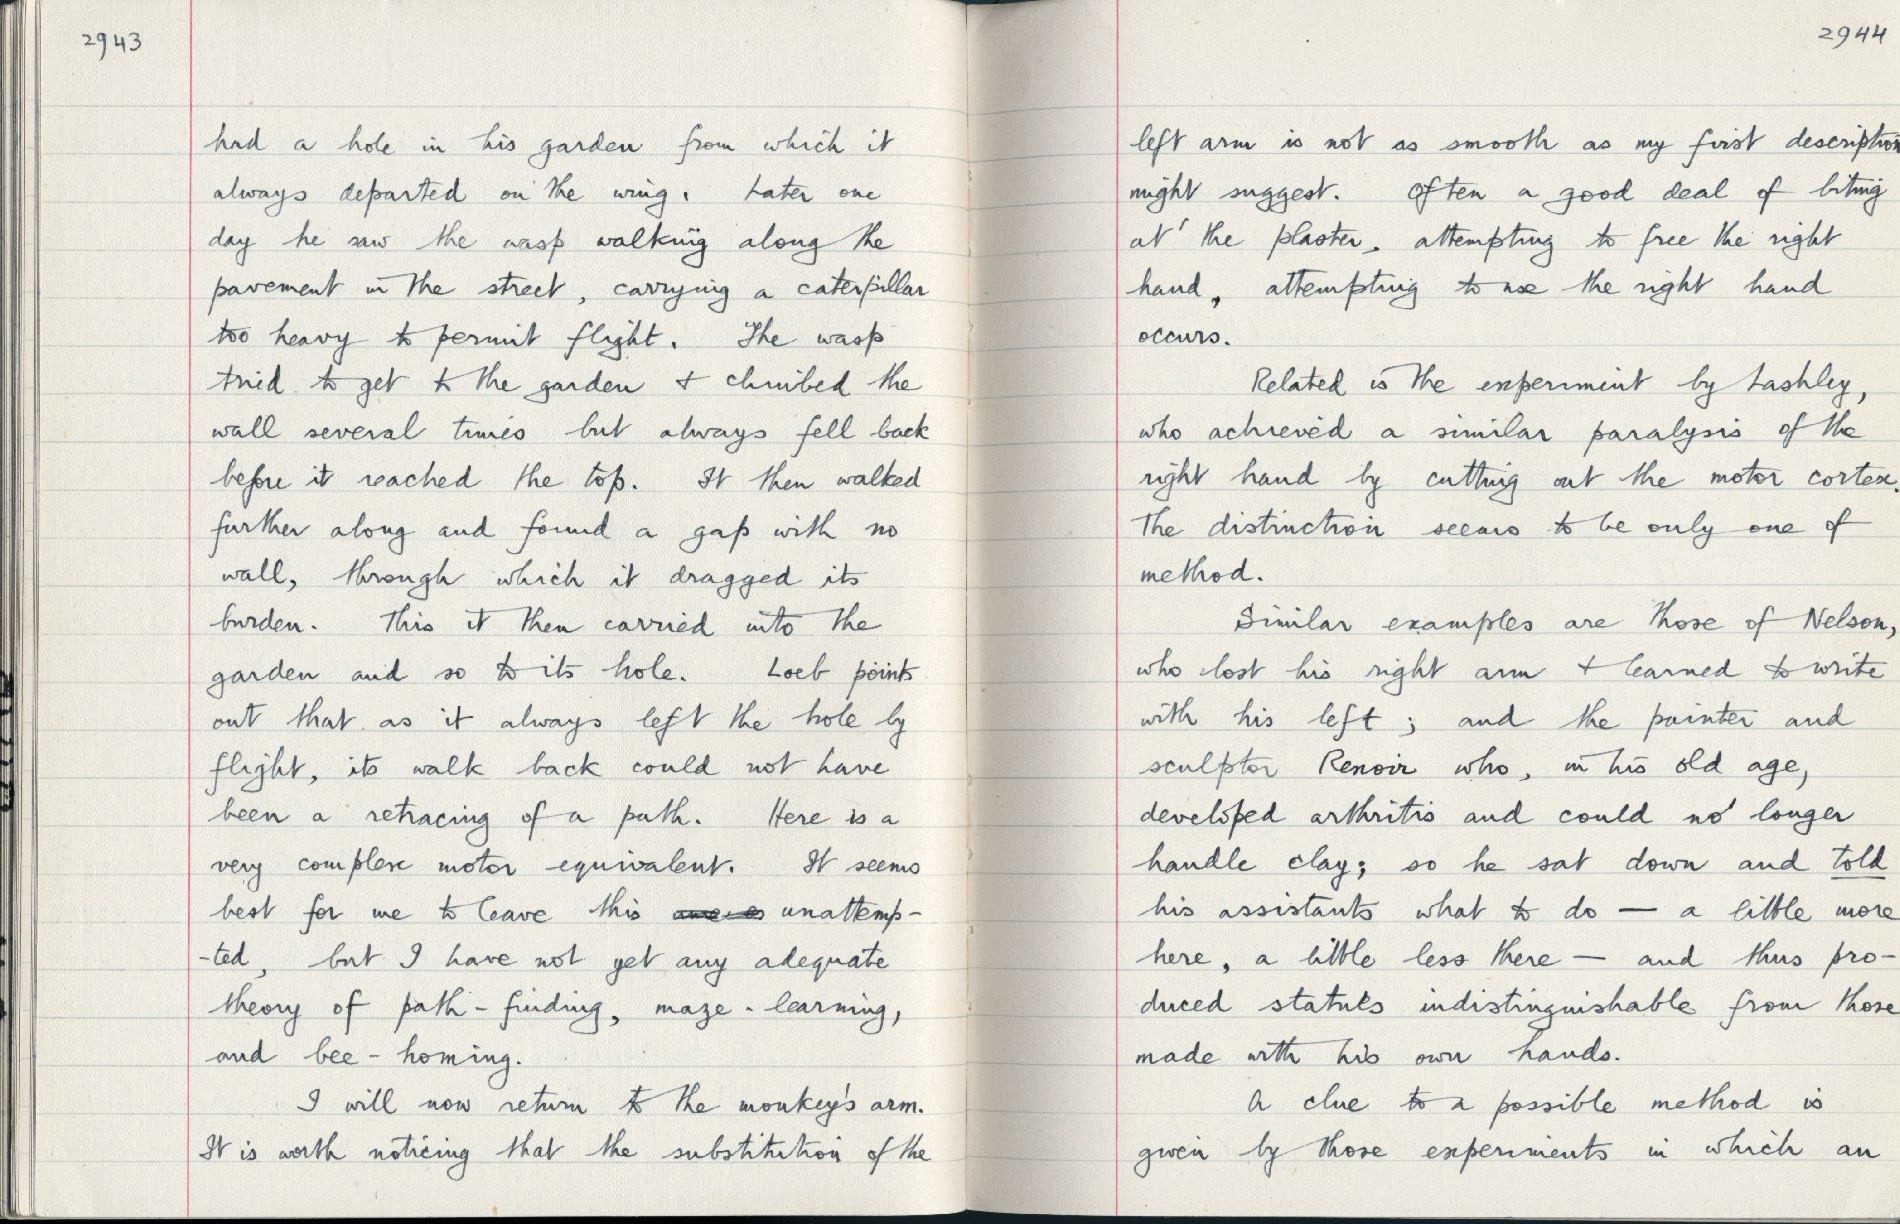 2943
had a hole in his garden from which it
always departed on the wing. Later one
day he saw the wasp walking along the
pavement in the street, carrying a caterpillar
too heavy to permit flight. The wasp
tried to get to the garden & climbed the
wall several times but always fell back
before it reached the top. It then walked
further along and found a gap with no
wall, through which it dragged its
burden. This it then carried into the
garden and so to its hole. Loeb points
out that as it always left the hole by
flight, its walk back could not have
been a retracing of a path. Here is a
very complex motor equivalent. It seems
best for me to leave this unattemp-
-ted, but I have not yet any adequate
theory of path-finding, maze-learning,
and bee-homing.
I will now return to the monkey's arm.
It is worth noticing that the substitution of the
2944
left arm is not as smooth as my first description
might suggest. Often a good deal of biting
at the plaster, attempting to free the right
hand, attempting to use the right hand
occurs.
Related is the experiment by Lashley,
who achieved a similar paralysis of the
right hand by cutting out the motor cortex.
The distinction seems to be only one of
method.
Similar examples are those of Nelson,
who lost his right arm & learned to write
with his left; and the painter and
sculptor Renoir who, in his old age,
developed arthritis and could no longer
handle clay; so he sat down and told
his assistants what to do — a little more
here, a little less there — and thus pro-
duced statues indistinguishable from those
made with his own hands.
A clue to a possible method is
given by those experiments in which an